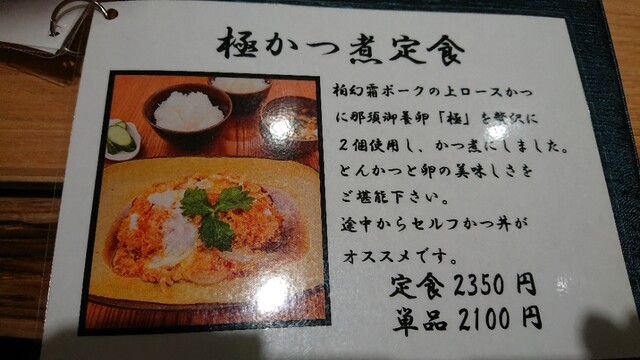 極かつ煮定食
柏幻霜ポークの上ロースかつ
に那須御養卵「極」を贅沢に
2個使用し、かつ煮にしました。
とんかつと卵の美味しさを
ご堪能下さい。
途中からセルフかつ丼が
オススメです。
定食 2350 円
単品 2100 円